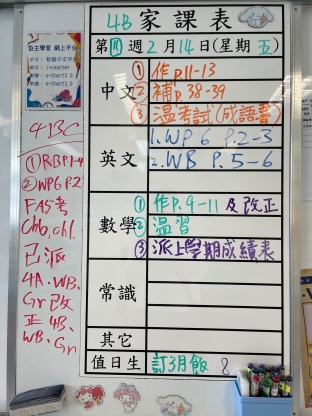 自主學習 網上平台
4B 家課表
第四週2月14日(星期五)
中文
① 作p11-13
② 補p.38-39
③ 溫考試(成語書)
英文
1. WP 6 P.2-3
2. WB P.5-6
數學
① 作P.9-11 及改正
② 溫習
③ 派上學期成績表
常識
其它
值日生 訂3月飯 8
4BC
① RBP1-4
② WP6 P.2
已派
4A. WB.
Gr 改
正 4B.
WB. Gr